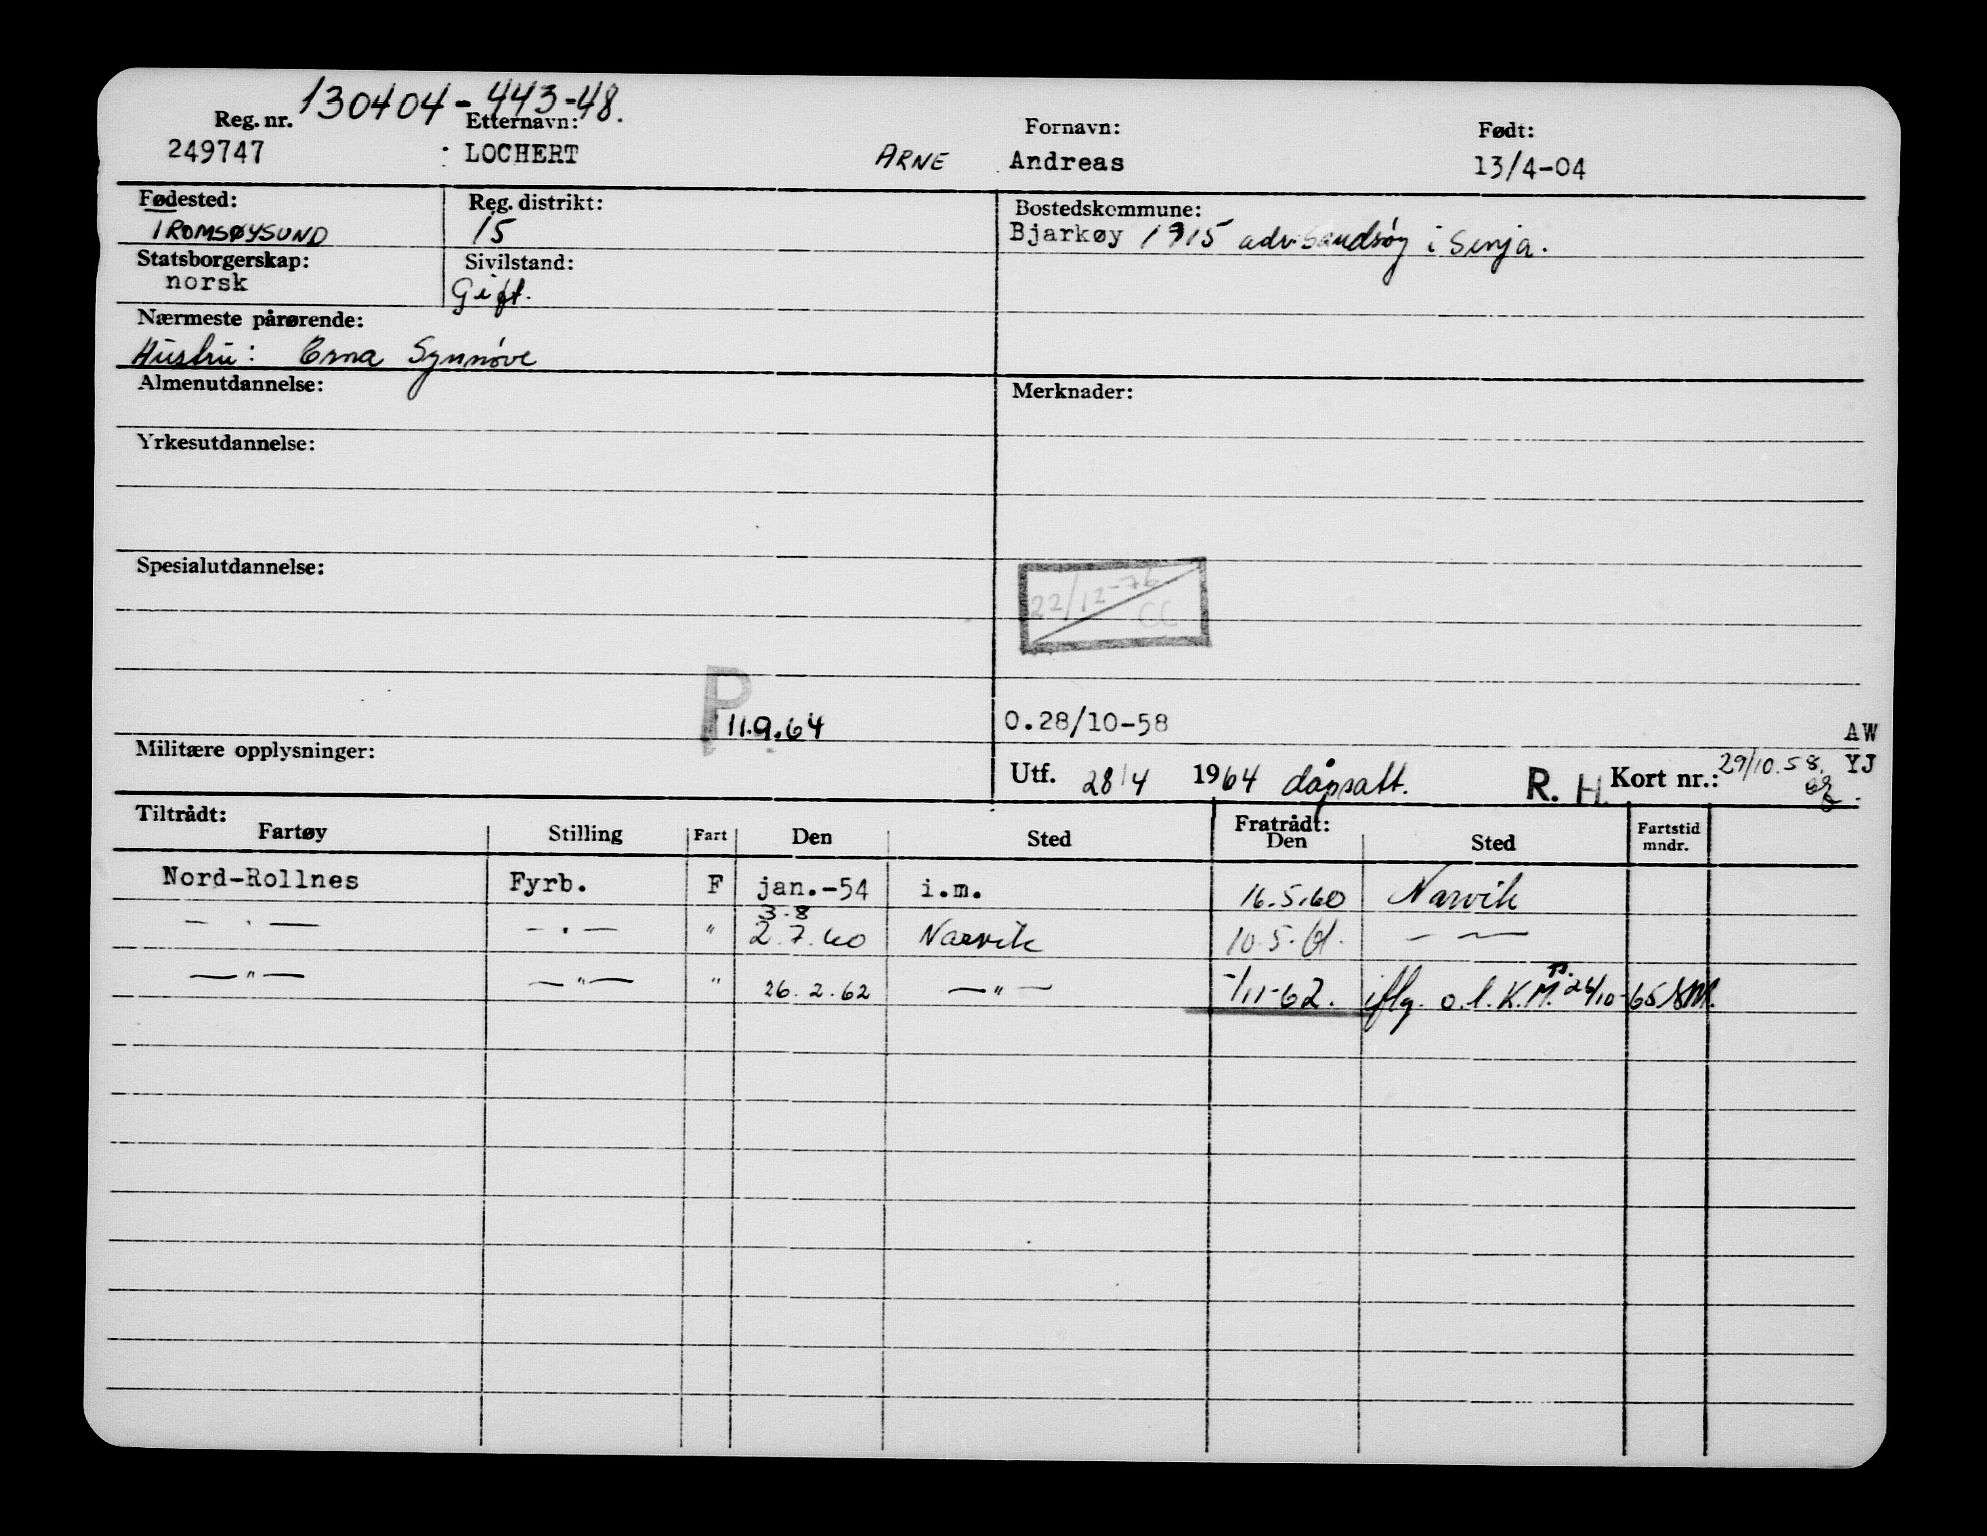 130404-443-48.
Reg. nr. Etternavn: Fornavn: Født:
249747 LOCHERT ARNE Andreas 13/4-04
Fødested: Reg. distrikt: Bostedskommune:
TROMSØYSUND 15 Bjarkøy 1915 adr. Sandsøy i Senja.
Statsborgerskap: Sivilstand:
norsk Gift.
Nærmeste pårørende:
Hustru: Erna Synnøve
Almenutdannelse: Merknader:
Yrkesutdannelse:
Spesialutdannelse:
22/12-76
CC
P 11.9.64 0.28/10-58 AW
Militære opplysninger: Utf. 28/4 1964 dåpsatt. R. H. Kort nr.: 29/10.58. YJ
Tiltrådt: Fratrådt:
Fartøy Stilling Fart Den Sted Den Sted Fartstid mndr.
Nord-Rollnes Fyrb. F jan.-54 i.m. 16.5.60 Narvik
3.8
— " — — " — " 2.7.60 Narvik 10.5.61. — " —
— " — — " — " 26.2.62 — " — -/11-62. iflg. o.l. K.M. 26/10-65 SM.